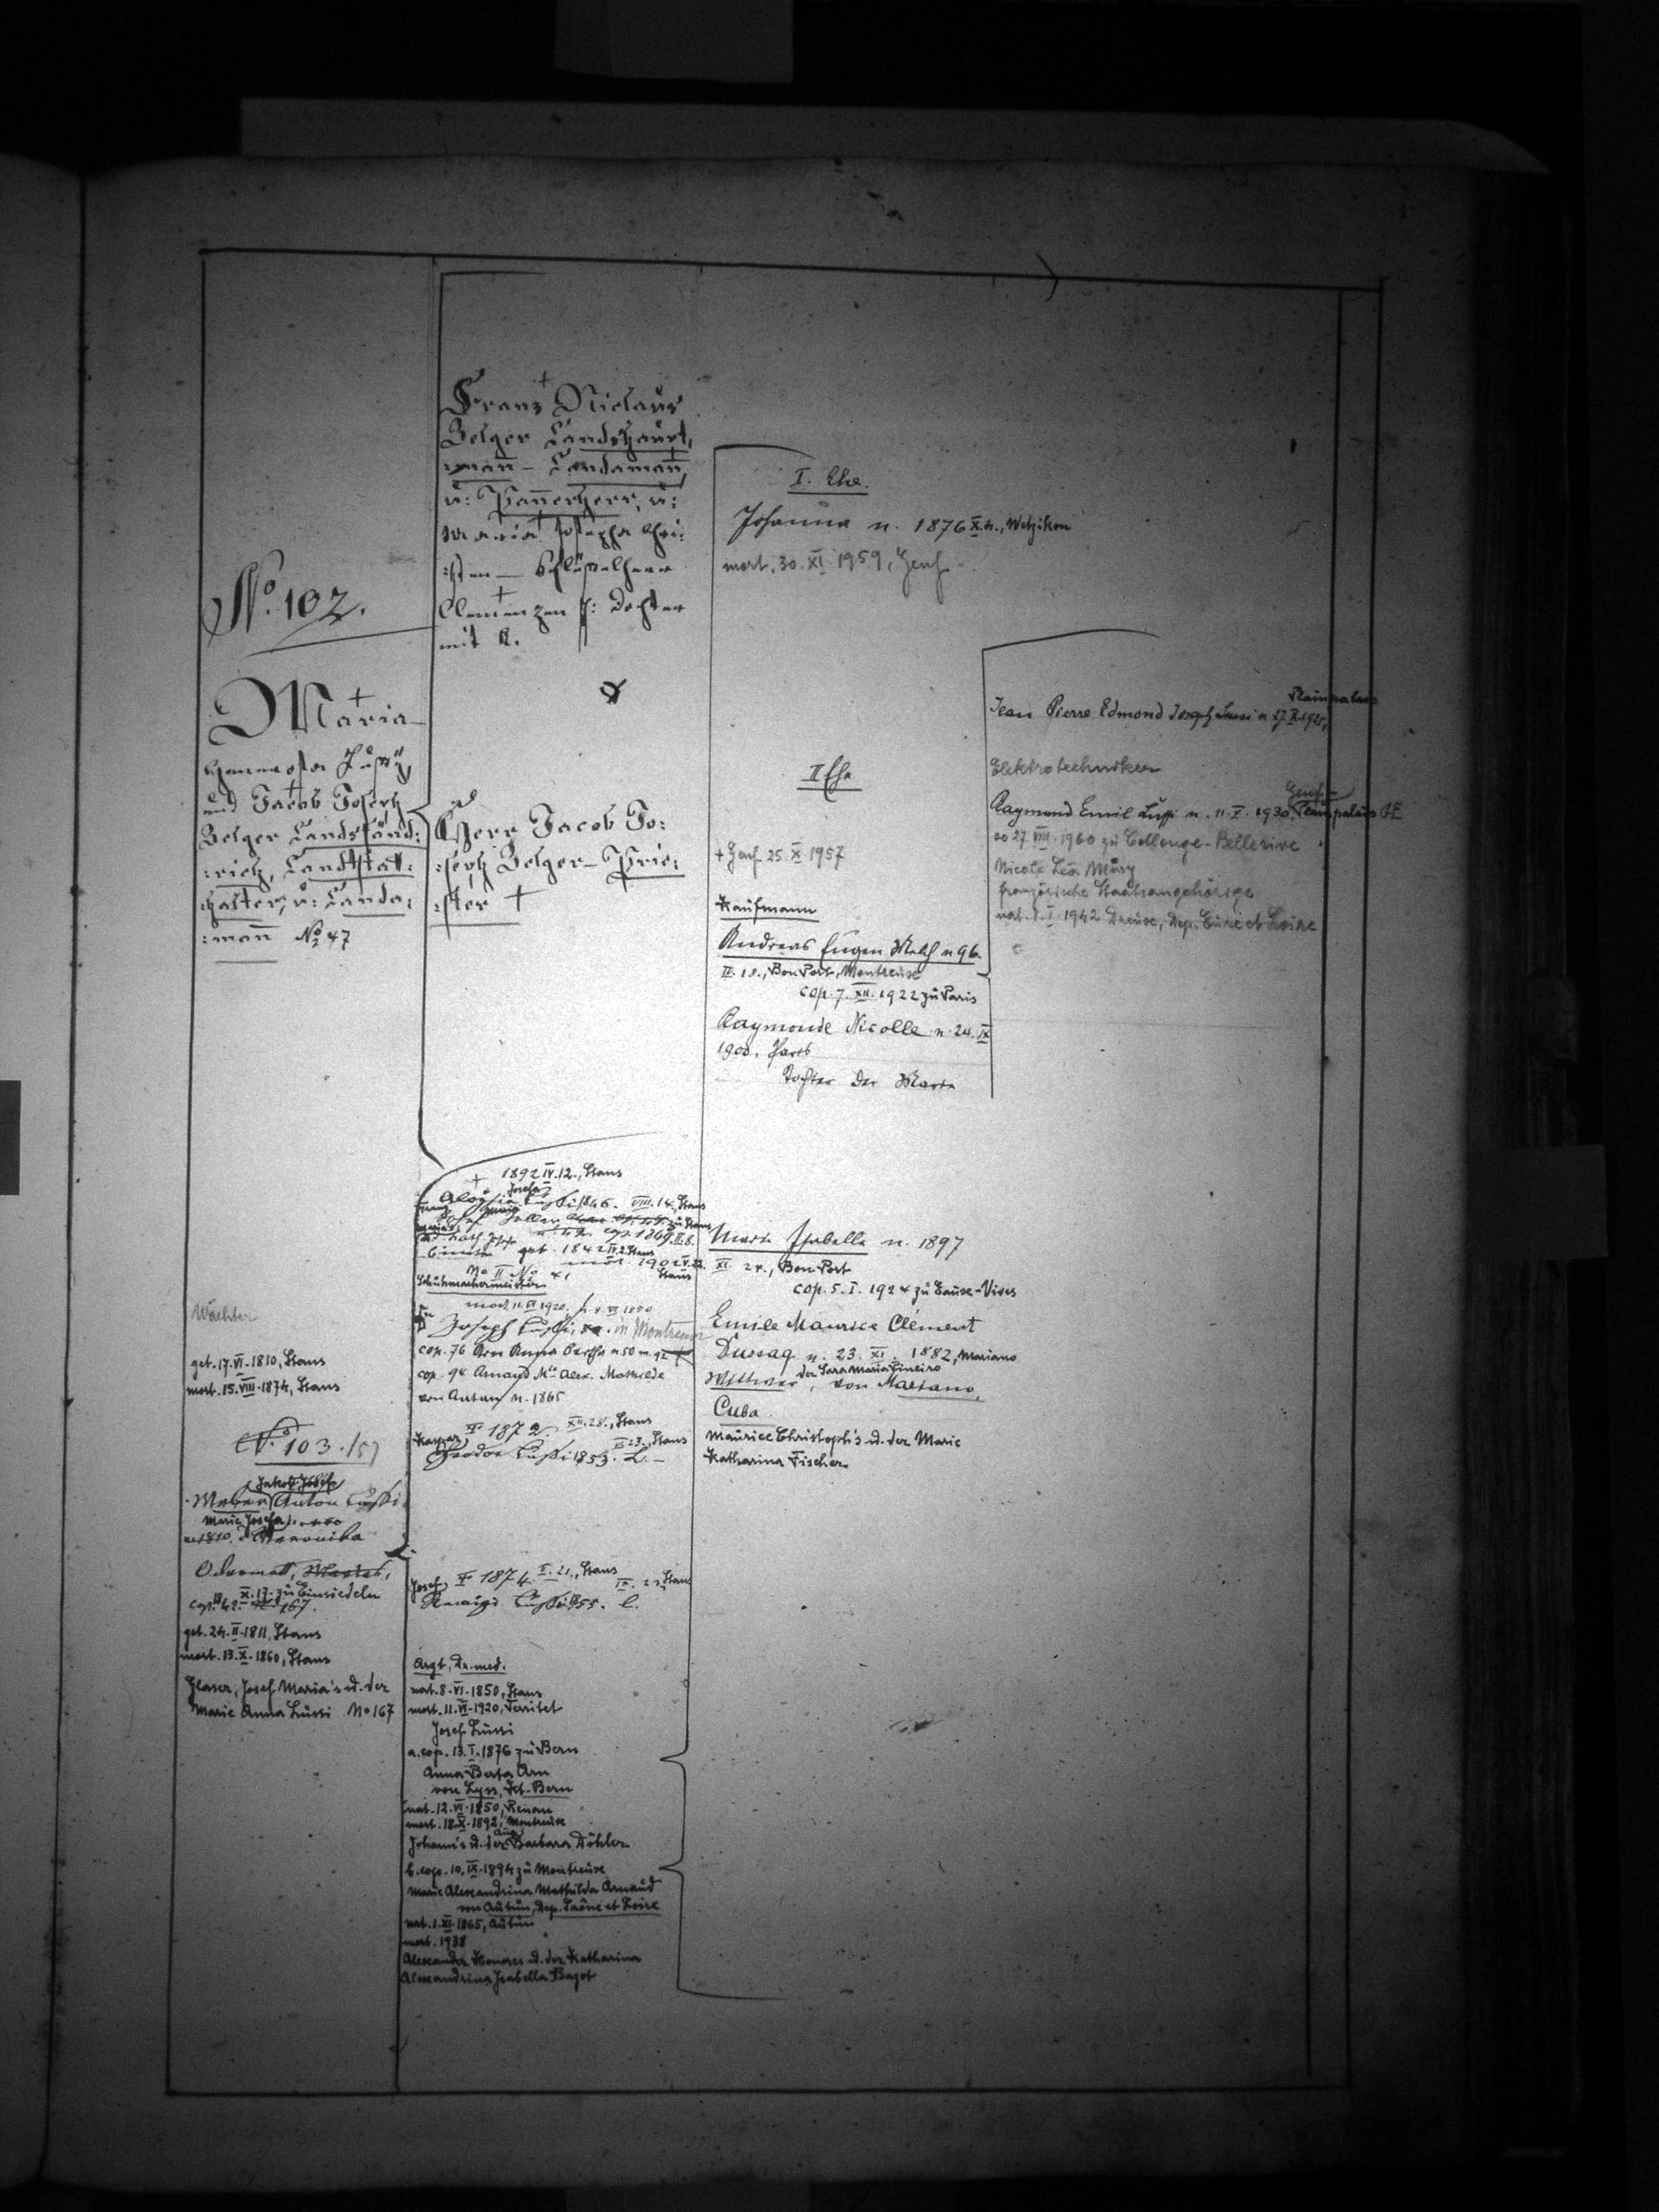 No. 102.
Maria
und Jacob Joseph
Zelger Landsfänd:
:rich, Landtstat:
:halter, u: Landa:
:man̄ No 47
Wächter
get. 17. VI. 1810, Stans
mort. 15. VIII. 1874, Stans
No. 103.
Jakob Josef
Anton Lussi
Maria Josefa
n. 1810. Veronika
Odermatt,
cop. 42. X. 17. zu Einsiedeln
get. 24. II. 1811, Stans
mort. 13. X. 1860, Stans
Glaser, Josef Maria's u. der
Marie Anna Lussi No 167
Franz Niclaus
Zelger Landshaupt,
:man̄ – Landaman̄,
u: Pan̄erherr, u:
Maria Josepha Chri:
:sten –
Clemenzen s: Dochter
mit K.
Herr Jacob Jo:
:seph Zelger – Prie:
:ster †
† 1892 IV. 12., Stans
Aloysia Lussi 1846. VIII. 14., Stans
cop. 1869. II. 8.
get. 1842 IV. 2. Stans
Schuhmachermeister
mort. 11. VI 1920. n. 8. VI 1850
Joseph Lussi, in Montreux
cop. 76 Arn Anna Bertha n 50 m. 92
cop. 94 Arnaud Mie Alex. Mathilde
von Autun n. 1865
Kaspar 1872 XII. 28., Stans
Theodor Lussi 1853. II. 23., Stans
Josef 1874. I. 21., Stans
Remigi Lussi 1855. IX. 23. Stans
Arzt, Dr. med.
nat. 8. VI. 1850, Stans
mort. 11. VI. 1920, Territet
Josef Lussi
a. cop. 13. I. 1876 zu Bern
Anna Berta Arn
von Lyss, Kt. Bern
nat. 12. VI. 1850, Renan
mort. 18. X. 1892, Montreux
Johann's u. der Anna Barbara Döhler
b. cop. 10. IX. 1894 zu Montreux
Marie Alexandrina Mathilda Arnaud
von Autun, Dep. Saône et Loire
nat. 1. XI. 1865, Autun
mort. 1938
Alexander Honores u. der Katharina
Alexandrina Isabella Bazot
I. Ehe.
Johanna n. 1876 X. 4., Wetzikon
mort. 30. XI 1959, Genf.
II Ehe
+ Genf 25. X 1957
Kaufmann
Andreas Eugen n 96.
II. 18., Bon Port, Montreux
cop. 7. XII. 1922 zu Paris
Raymonde Nicolle n. 24. IX
1900, Paris
Tochter der Maria
Maria Isabella n. 1897
XI 24., Bon Port
cop. 5. I. 1924 zu Eaux-Vives
Emile Maurice Clément
Dussaq n. 23. XI. 1882, Mariano
Wittwer, der Sara Maria Lineiro, von Mariano,
Cuba
Maurice Christoph's u. der Marie
Katharina Fischer
Plainpalais
Jean Pierre Edmond Joseph Lussi n. 27. X. 1925,
Elektrotechniker
Genf-
Raymond Emil Lussi n. 11. V. 1930, Plainpalais GE
oo 27. VIII. 1960 zu Collonge-Bellerive
Nicole Léa Mury
französische Staatsangehörige
nat. 1. I 1942 Dreux, Dep. Eure et Loire